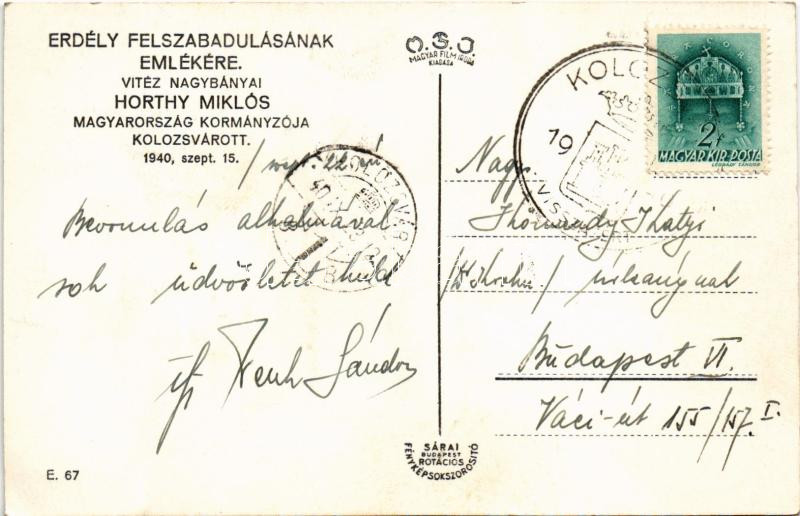 ERDÉLY FELSZABADULÁSÁNAK
EMLÉKÉRE.
VITÉZ NAGYBÁNYAI
HORTHY MIKLÓS
MAGYARORSZÁG KORMÁNYZÓJA
KOLOZSVÁROTT.
1940, szept. 15.
szept. 22
Bevonulás alkalmával
sok üdvözletet küld
ifj Sándor
E. 67
MAGYAR FILM IRODA
KIADÁSA
SÁRAI
BUDAPEST
ROTÁCIÓS
FÉNYKÉPSOKSZOROSITÓ
KOLOZ
19
VISSZATÉRT
KOLOZSVÁR
KORONA
2f
MAGYAR KIR. POSTA
LÉGRÁDY SÁNDOR
Nagys.
Katyi
Budapest VI.
Váci-út 155/157. I.